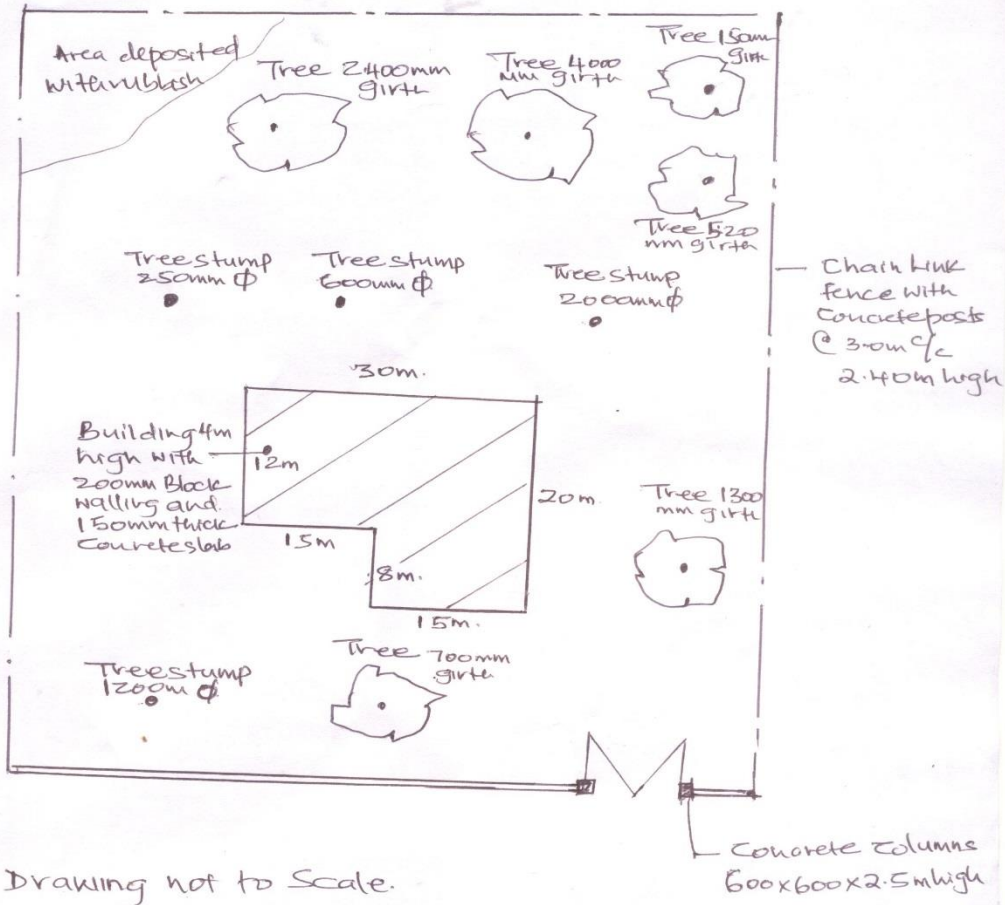 Area deposited
with rubbish
Tree 2400mm
girth
Tree 4000
mm girth
Tree 150mm
girth
Tree 520
mm girth
Tree stump
250mm Φ
Tree stump
600mm Φ
Tree stump
2000mm Φ
Chain Link
fence with
Concrete posts
@ 3.0m c/c
2.40m high
30m.
Building 4m
high with
200mm Block
walling and
150mm thick
Concrete slab
12m
20m
15m
8m.
15m.
Tree 1300
mm girth
Tree stump
1200m Φ
Tree 700mm
girth
Concrete Columns
600x600x2.5m high
Drawing not to Scale.